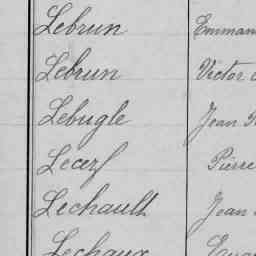 Lebrun Emman
Lebrun Victor
Lebugle Jean
Lecerf Pierre
Lechault Jean
Lechaux